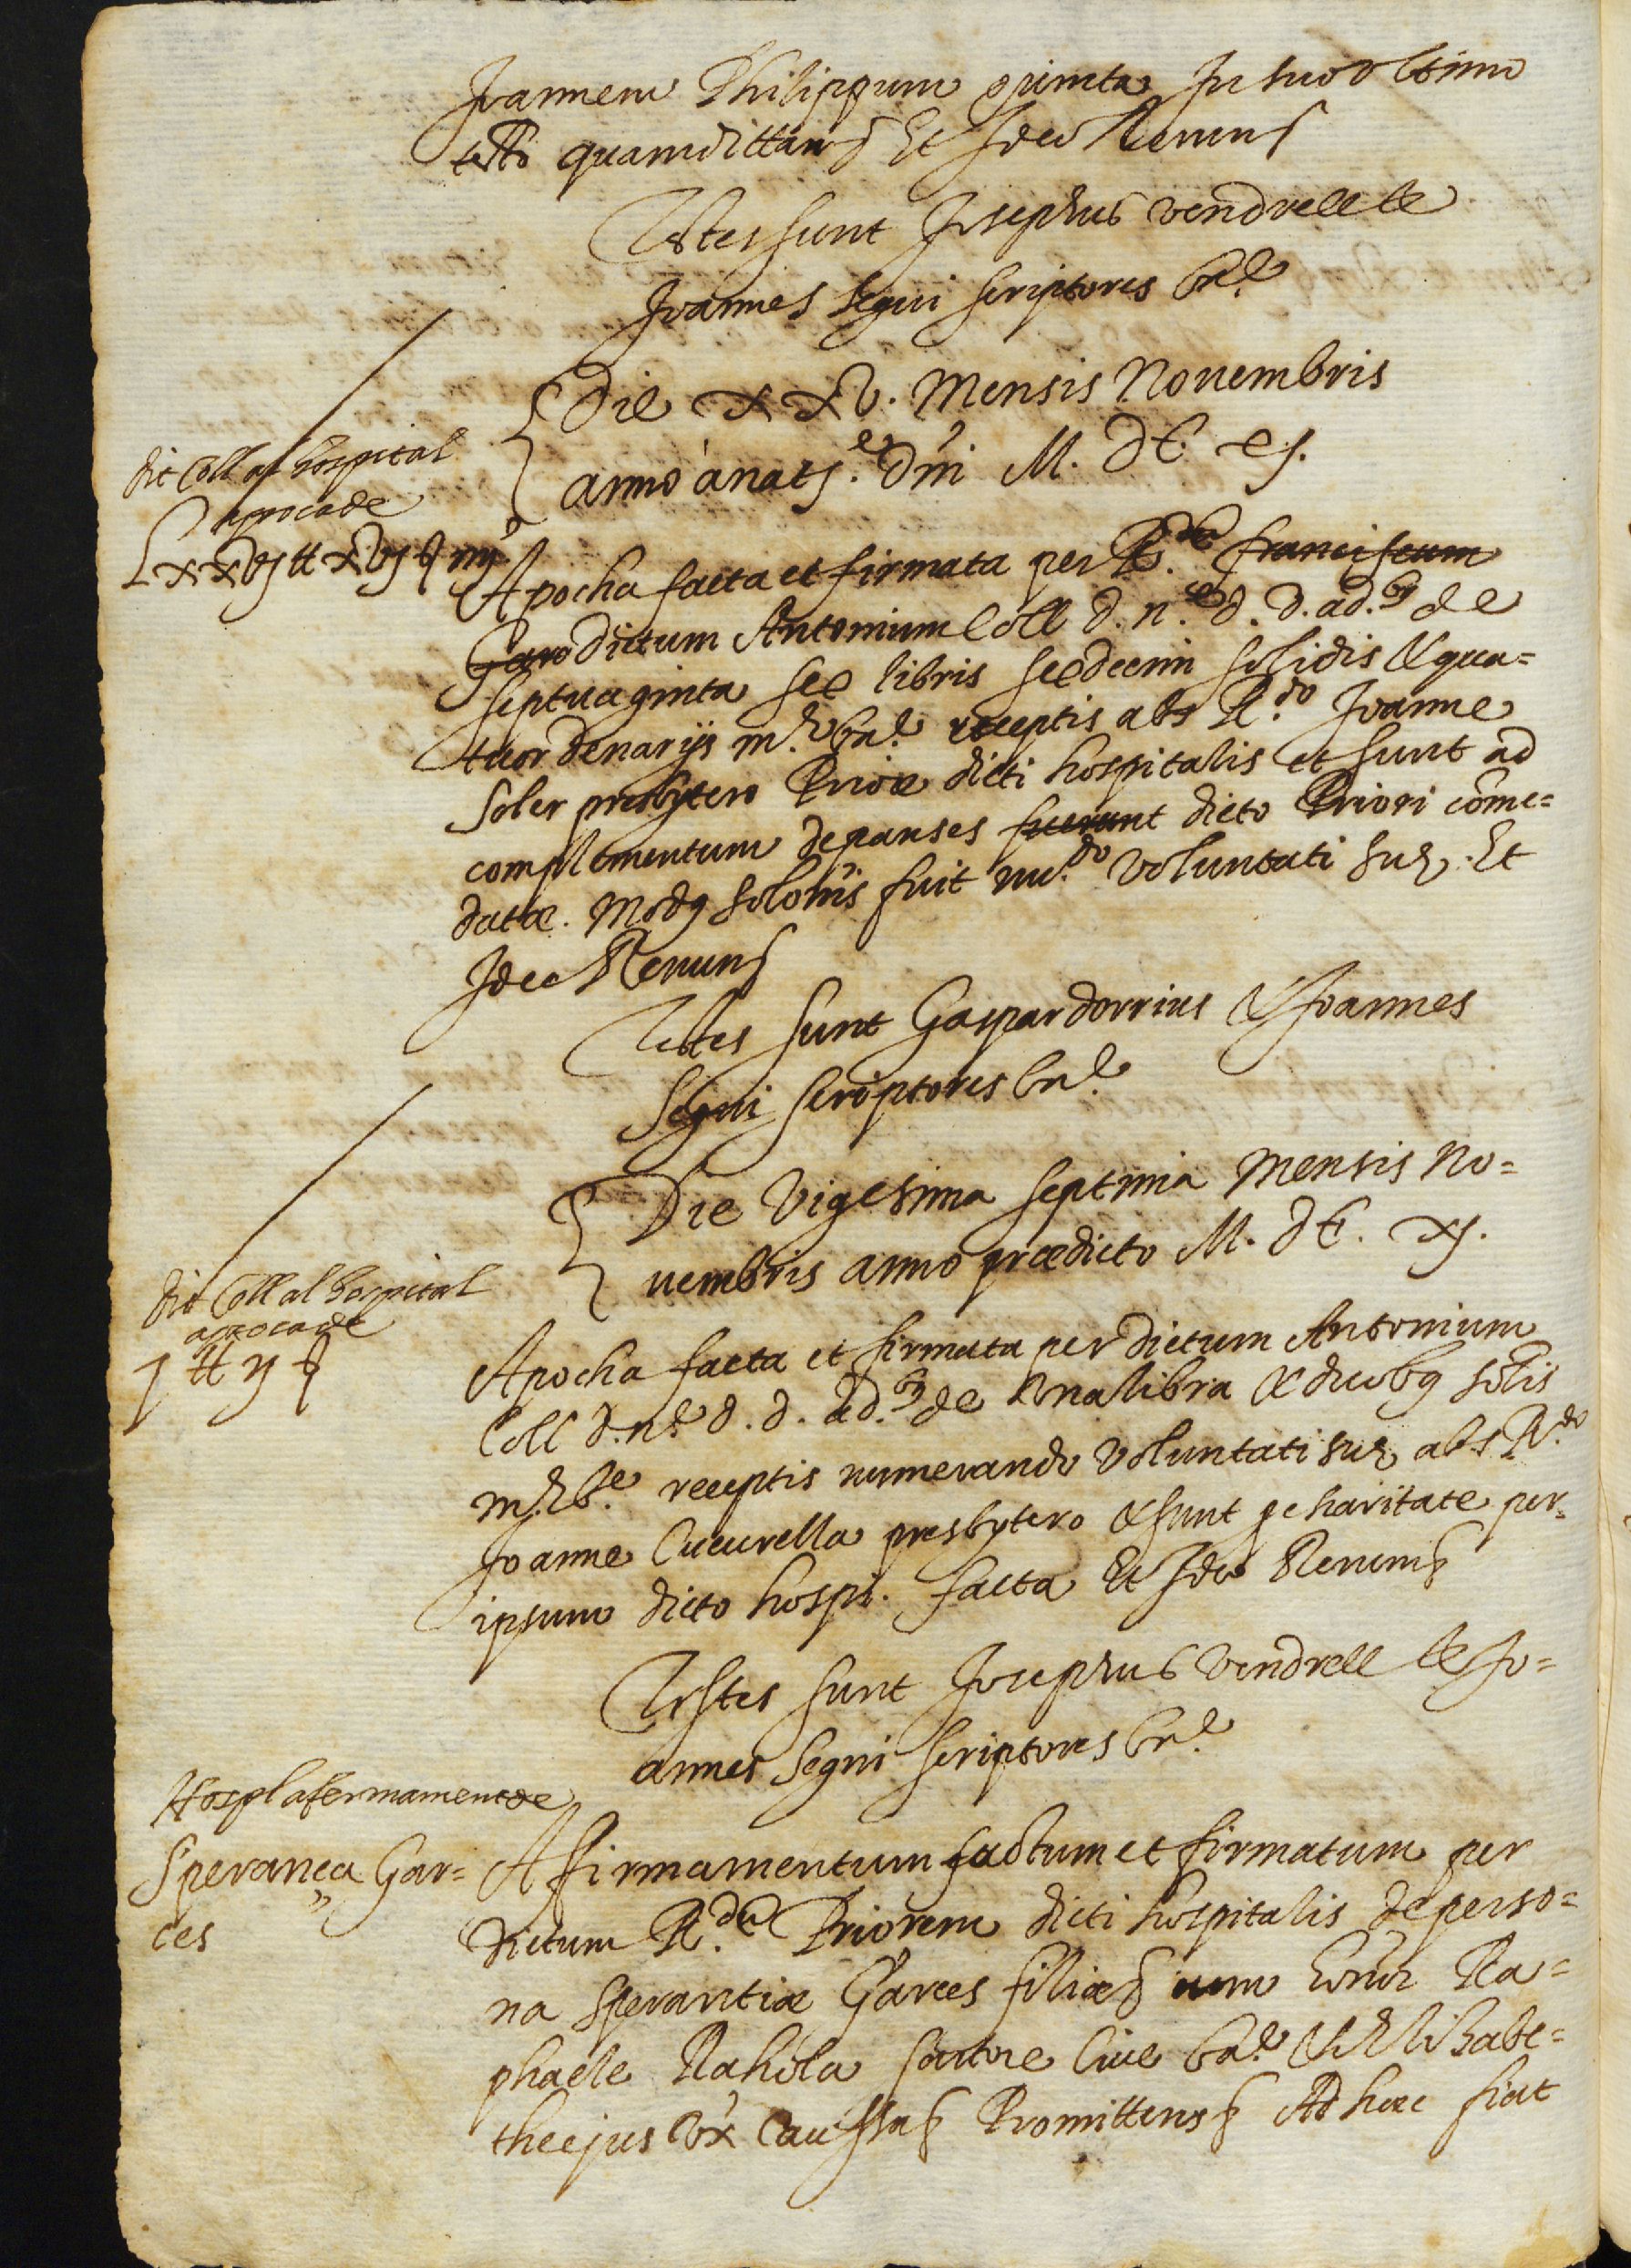 Joannem Philippum quinta In suo ultimo
testo quamdittars Et Ideo Renuns
Testes sunt Josephus vendrell et
Joannes segui scriptores bne
Die xxv. Mensis Novembris
anno a nats.e Dni M. DC xj.
dit Coll al hospital
apocade
Lxxvj ll xvj s iiij
Apocha facta et firmata per R.dum franciscum
Garo dictum Antonium Coll d. n.e d. d. ad.b9 de
septuaginta sex libris sexdecim solidis & qua=
tuor denarijs m.e bne receptis abs R.do Joanne
Soler presbytero Priore dicti hospitalis et sunt ad
complementum depanses fuerunt dicto Priori come=
datæ. Mod9 solonis fuit nu.do voluntati suæ. Et
Ideo Renuns
Testes sunt Gaspar dorrius & Joannes
Segui scriptores bne
Die Vigesima septima Mensis No=
vembris anno prædicto M. DC. xj.
dit Coll al hospital
apocade
j ll ij s
Apocha facta et firmata per dictum Antonium
Coll d. n.e d. d. ad.b9 de Una libra & duob9 solis
m.e b.e receptis numerando voluntati suæ abs R.do
Joanne Cucurella presbytero & sunt pe charitate per
ipsum dicto hospi. facta Et Ideo Renuns
Testes sunt Josephus vendrell & Jo=
annes Segui scriptores bne
Hospl afermament de
Sperança Gar=
ces
Affirmamentum factum et firmatum per
dictum R.dum Priorem dicti hospitalis de perso=
na Sperantiæ Garces filiæ cum honor Ra=
phaele Rahola sartore Cive bne & Elisabe=
the ejus Ux Promittens Ad hæc fiat